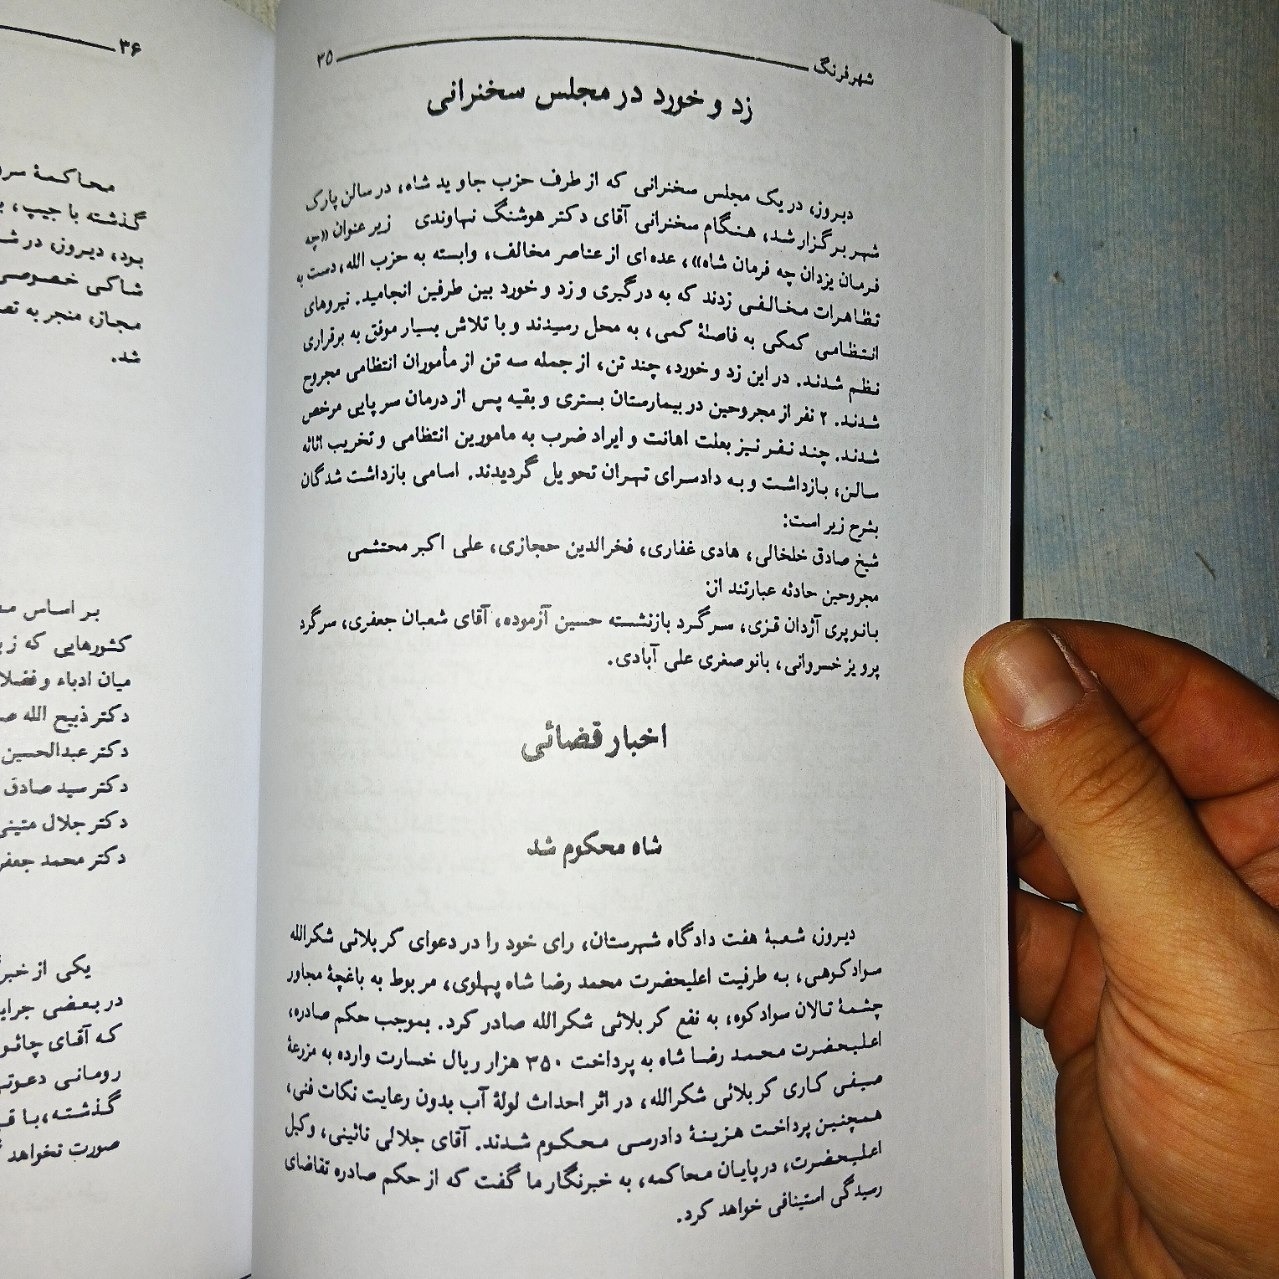 شهر فرنگ ۳۵
زد و خورد در مجلس سخنرانی
دیروز، در یک مجلس سخنرانی که از طرف حزب جاوید شاه، در سالن پارک
شهر برگزار شد، هنگام سخنرانی آقای دکتر هوشنگ نهاوندی زیر عنوان «چه
فرمان یزدان چه فرمان شاه»، عده ای از عناصر مخالف، وابسته به حزب الله، دست به
تظاهرات مخالفی زدند که به درگیری و زد و خورد بین طرفین انجامید. نیروهای
انتظامی کمکی به فاصلهٔ کمی، به محل رسیدند و با تلاش بسیار موفق به برقراری
نظم شدند. در این زد و خورد، چند تن، از جمله سه تن از مأموران انتظامی مجروح
شدند. ۲ نفر از مجروحین در بیمارستان بستری و بقیه پس از درمان سر پایی مرخص
شدند. چند نفر نیز بعلت اهانت و ایراد ضرب به مامورین انتظامی و تخریب اثاثه
سالن، بازداشت و به دادسرای تهران تحویل گردیدند. اسامی بازداشت شدگان
بشرح زیر است:
شیخ صادق خلخالی، هادی غفاری، فخرالدین حجازی، علی اکبر محتشمی
مجروحین حادثه عبارتند از:
بانو پری آژدان قزی، سرگرد بازنشسته حسین آزموده، آقای شعبان جعفری، سرگرد
پرویز خسروانی، بانو صغری علی آبادی.
اخبار قضائی
شاه محکوم شد
دیروز، شعبهٔ هفت دادگاه شهرستان، رای خود را در دعوای کربلائی شکرالله
سوادکوهی، به طرفیت اعلیحضرت محمد رضا شاه پهلوی، مربوط به باغچهٔ مجاور
چشمهٔ تالان سوادکوه، به نفع کربلائی شکرالله صادر کرد. بموجب حکم صادره،
اعلیحضرت محمد رضا شاه به پرداخت ۳۵۰ هزار ریال خسارت وارده به مزرعهٔ
صیفی کاری کربلائی شکرالله، در اثر احداث لولهٔ آب بدون رعایت نکات فنی،
همچنین پرداخت هزینهٔ دادرسی محکوم شدند. آقای جلالی نائینی، وکیل
اعلیحضرت، در پایان محاکمه، به خبرنگار ما گفت که از حکم صادره تقاضای
رسیدگی استینافی خواهد کرد.
۳۶
محاکمهٔ
گذشته با جیپ،
بود، دیروز، در
شاکی خصوصی
مجاز، منجر به
شد.
بر اساس
کشورهایی که
میان ادباء و فضلا
دکتر ذبیح الله
دکتر عبدالحسین
دکتر سید صادق
دکتر جلال متینی
دکتر محمد
یکی از
در بعضی
که آقای
رومانی
گذشته، با
صورت نخواهد